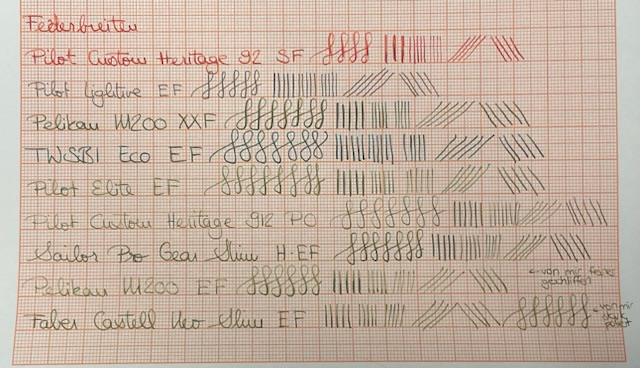 Federbreiten
Pilot Custom Heritage 92 SF
Pilot Lightive EF
Pelikan M200 XXF
TWSBI Eco EF
Pilot Elite EF
Pilot Custom Heritage 912 PO
Sailor Pro Gear Slim H-EF
Pelikan M200 EF ← von mir feiner geschliffen
Faber Castell Neo Slim EF ← von mir